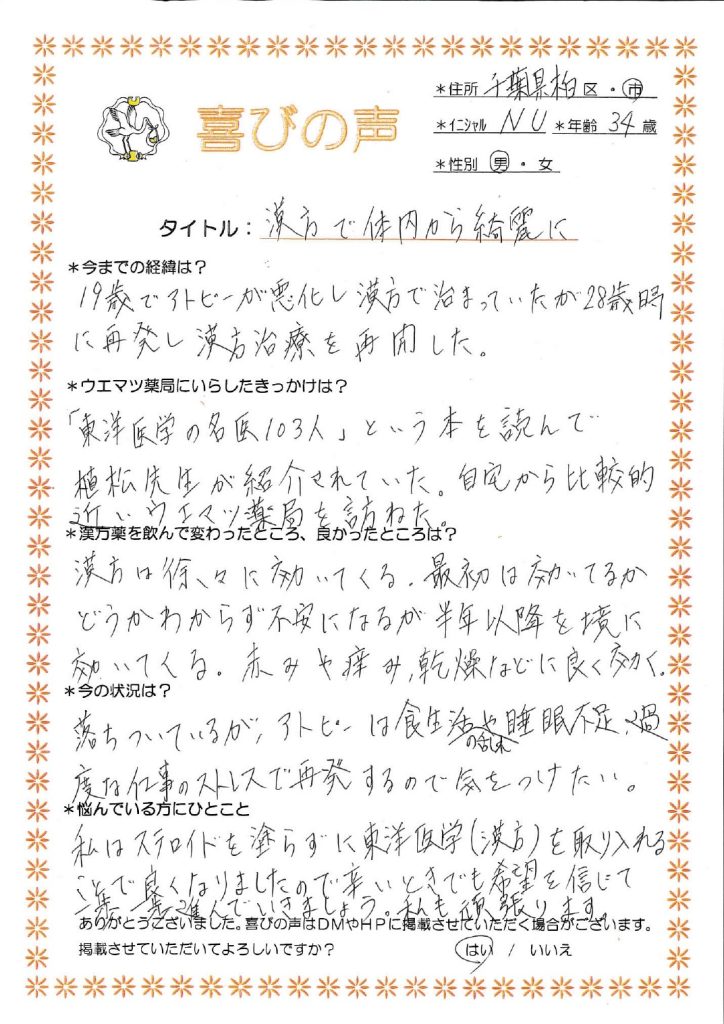 喜びの声
*住所 千葉県柏 区・市
*イニシャル NU *年齢 34 歳
*性別 男・女
タイトル:漢方で体内から綺麗に
*今までの経緯は?
19歳でアトピーが悪化し漢方で治まっていたが28歳時
に再発し漢方治療を再開した。
*ウエマツ薬局にいらしたきっかけは?
「東洋医学の名医103人」という本を読んで
植松先生が紹介されていた。自宅から比較的
近いウエマツ薬局を訪ねた。
*漢方薬を飲んで変わったところ、良かったところは?
漢方は徐々に効いてくる。最初は効いてるか
どうかわからず不安になるが半年以降を境に
効いてくる。赤みや痒み,乾燥などに良く効く。
*今の状況は?
落ちついているが,アトピーは食生活の乱れや睡眠不足、過
度な仕事のストレスで再発するので気をつけたい。
*悩んでいる方にひとこと
私はステロイドを塗らずに東洋医学(漢方)を取り入れる
ことで良くなりましたので辛いときでも希望を信じて
一歩一歩進んでいきましょう。私も頑張ります。
ありがとうございました。喜びの声はDMやHPに掲載させていただく場合がございます。
掲載させていただいてよろしいですか? はい / いいえ